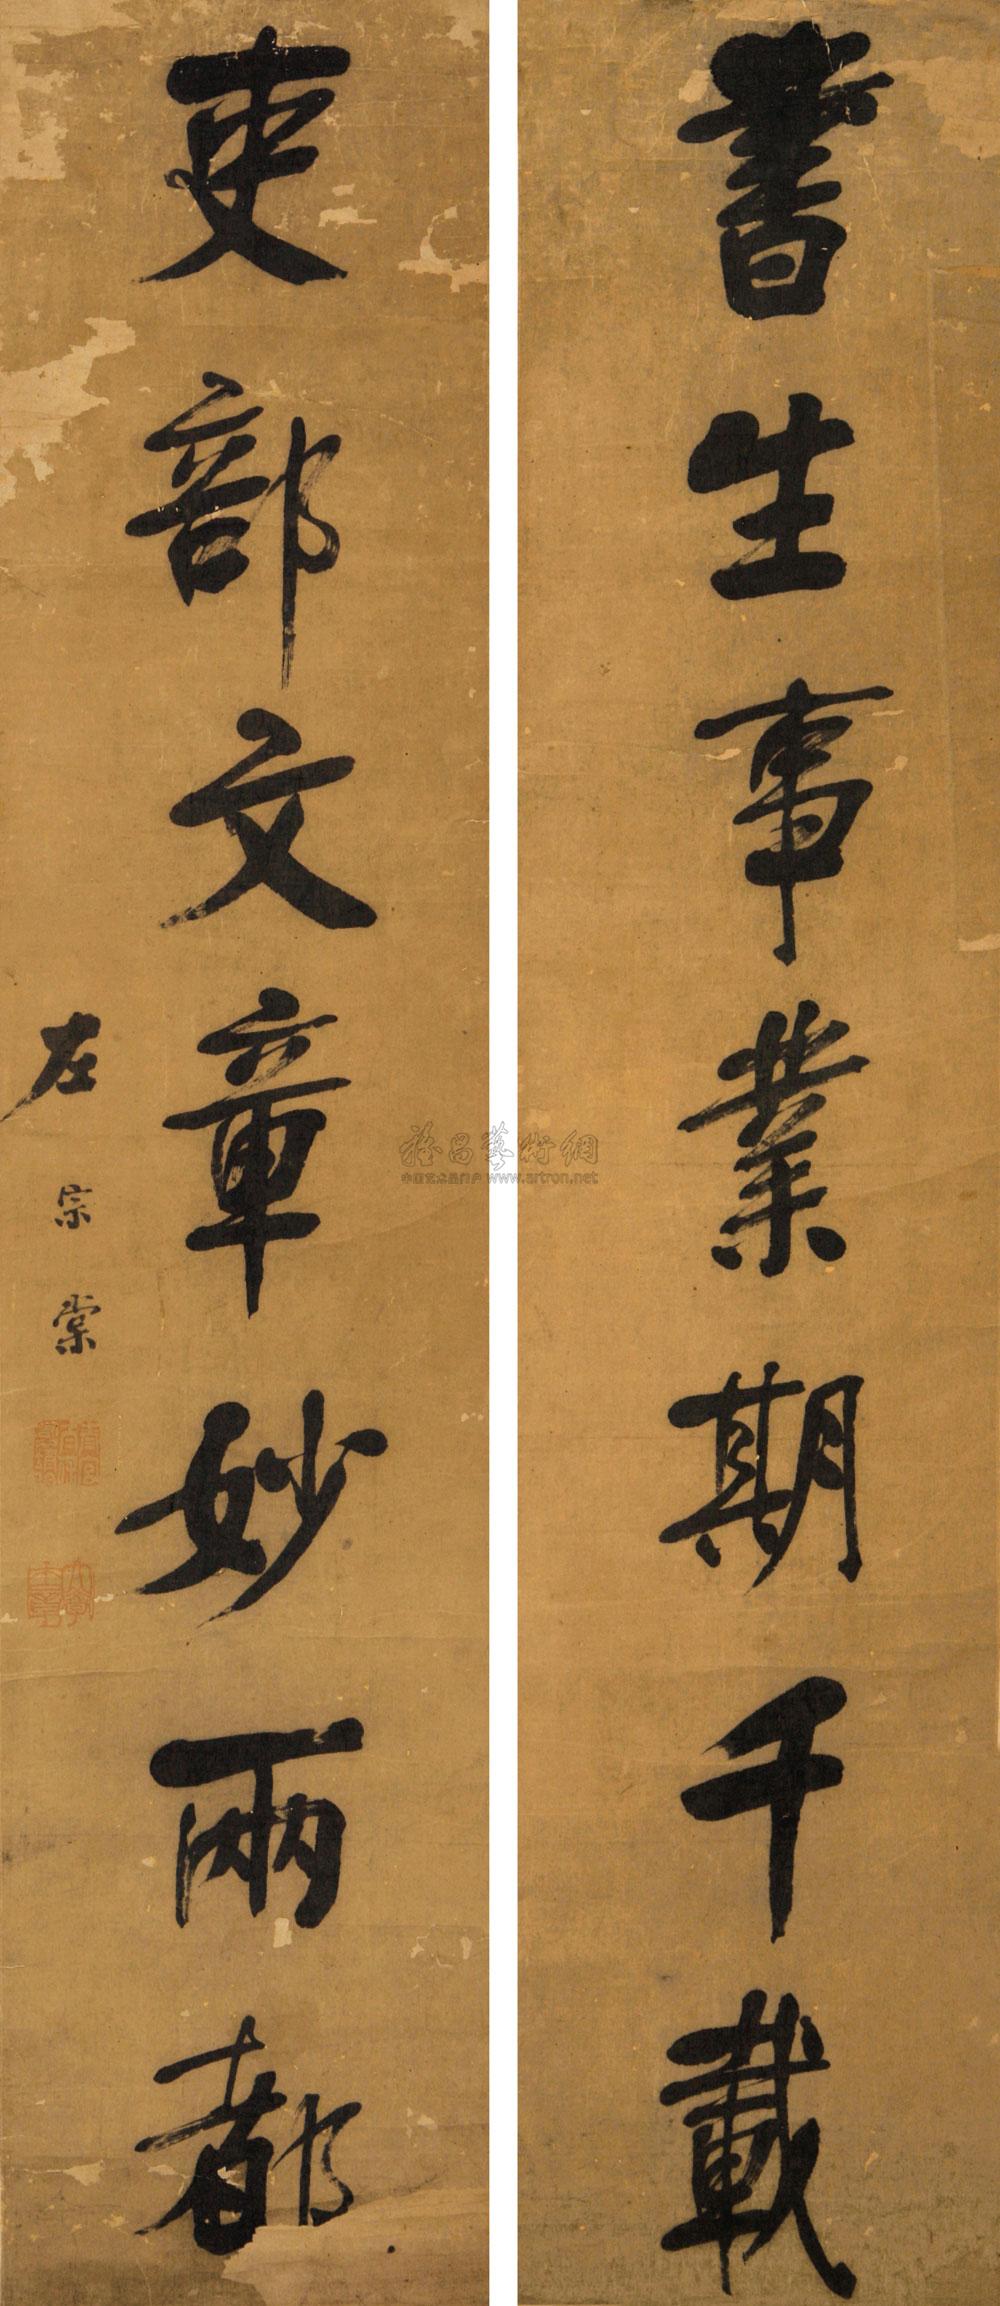 書生事業期千載
吏部文章妙兩都
左宗棠
雅昌藝術網
中国艺术品门户 www.artron.net